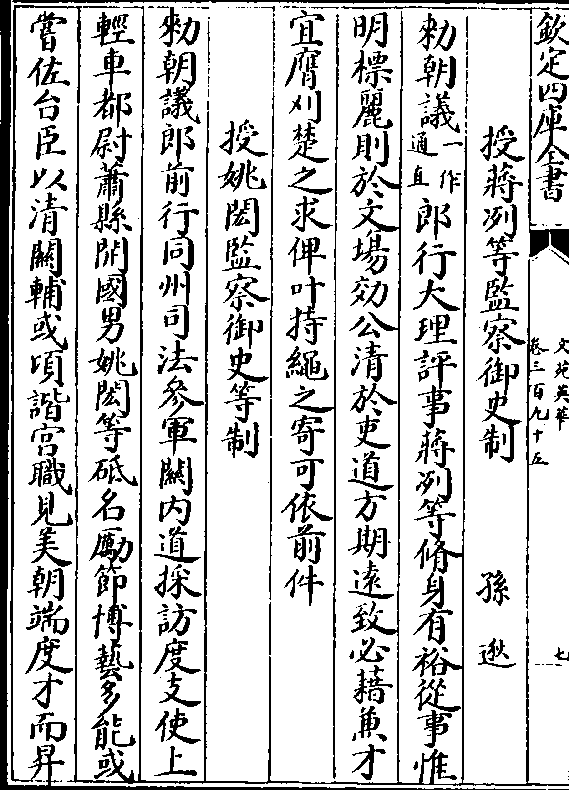 欽定四庫全書
文苑英華
卷三百九十五
七
授蔣冽等監察御史制
孫逖
勑朝議一作通直郎行大理評事蔣冽等脩身有裕從事惟
明標麗則於文場効公清於吏道方期遠致必藉兼才
宜膺刈楚之求俾叶持繩之寄可依前件
授姚閎監察御史等制
勑朝議郎前行同州司法參軍關内道採訪度支使上
輕車都尉蕭縣開國男姚閎等砥名勵節博藝多能或
嘗佐台臣以清關輔或頃諧宫職見美朝端度才而昇